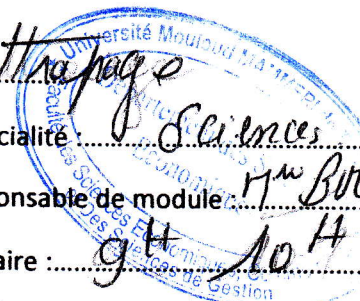 ttrapage
cialité :.......... Sciences
onsable de module : Mr
aire :...... 9H 10H
Université Mouloud MAMMERI
Faculté des Sciences Economiques,
Des Sciences de Gestion